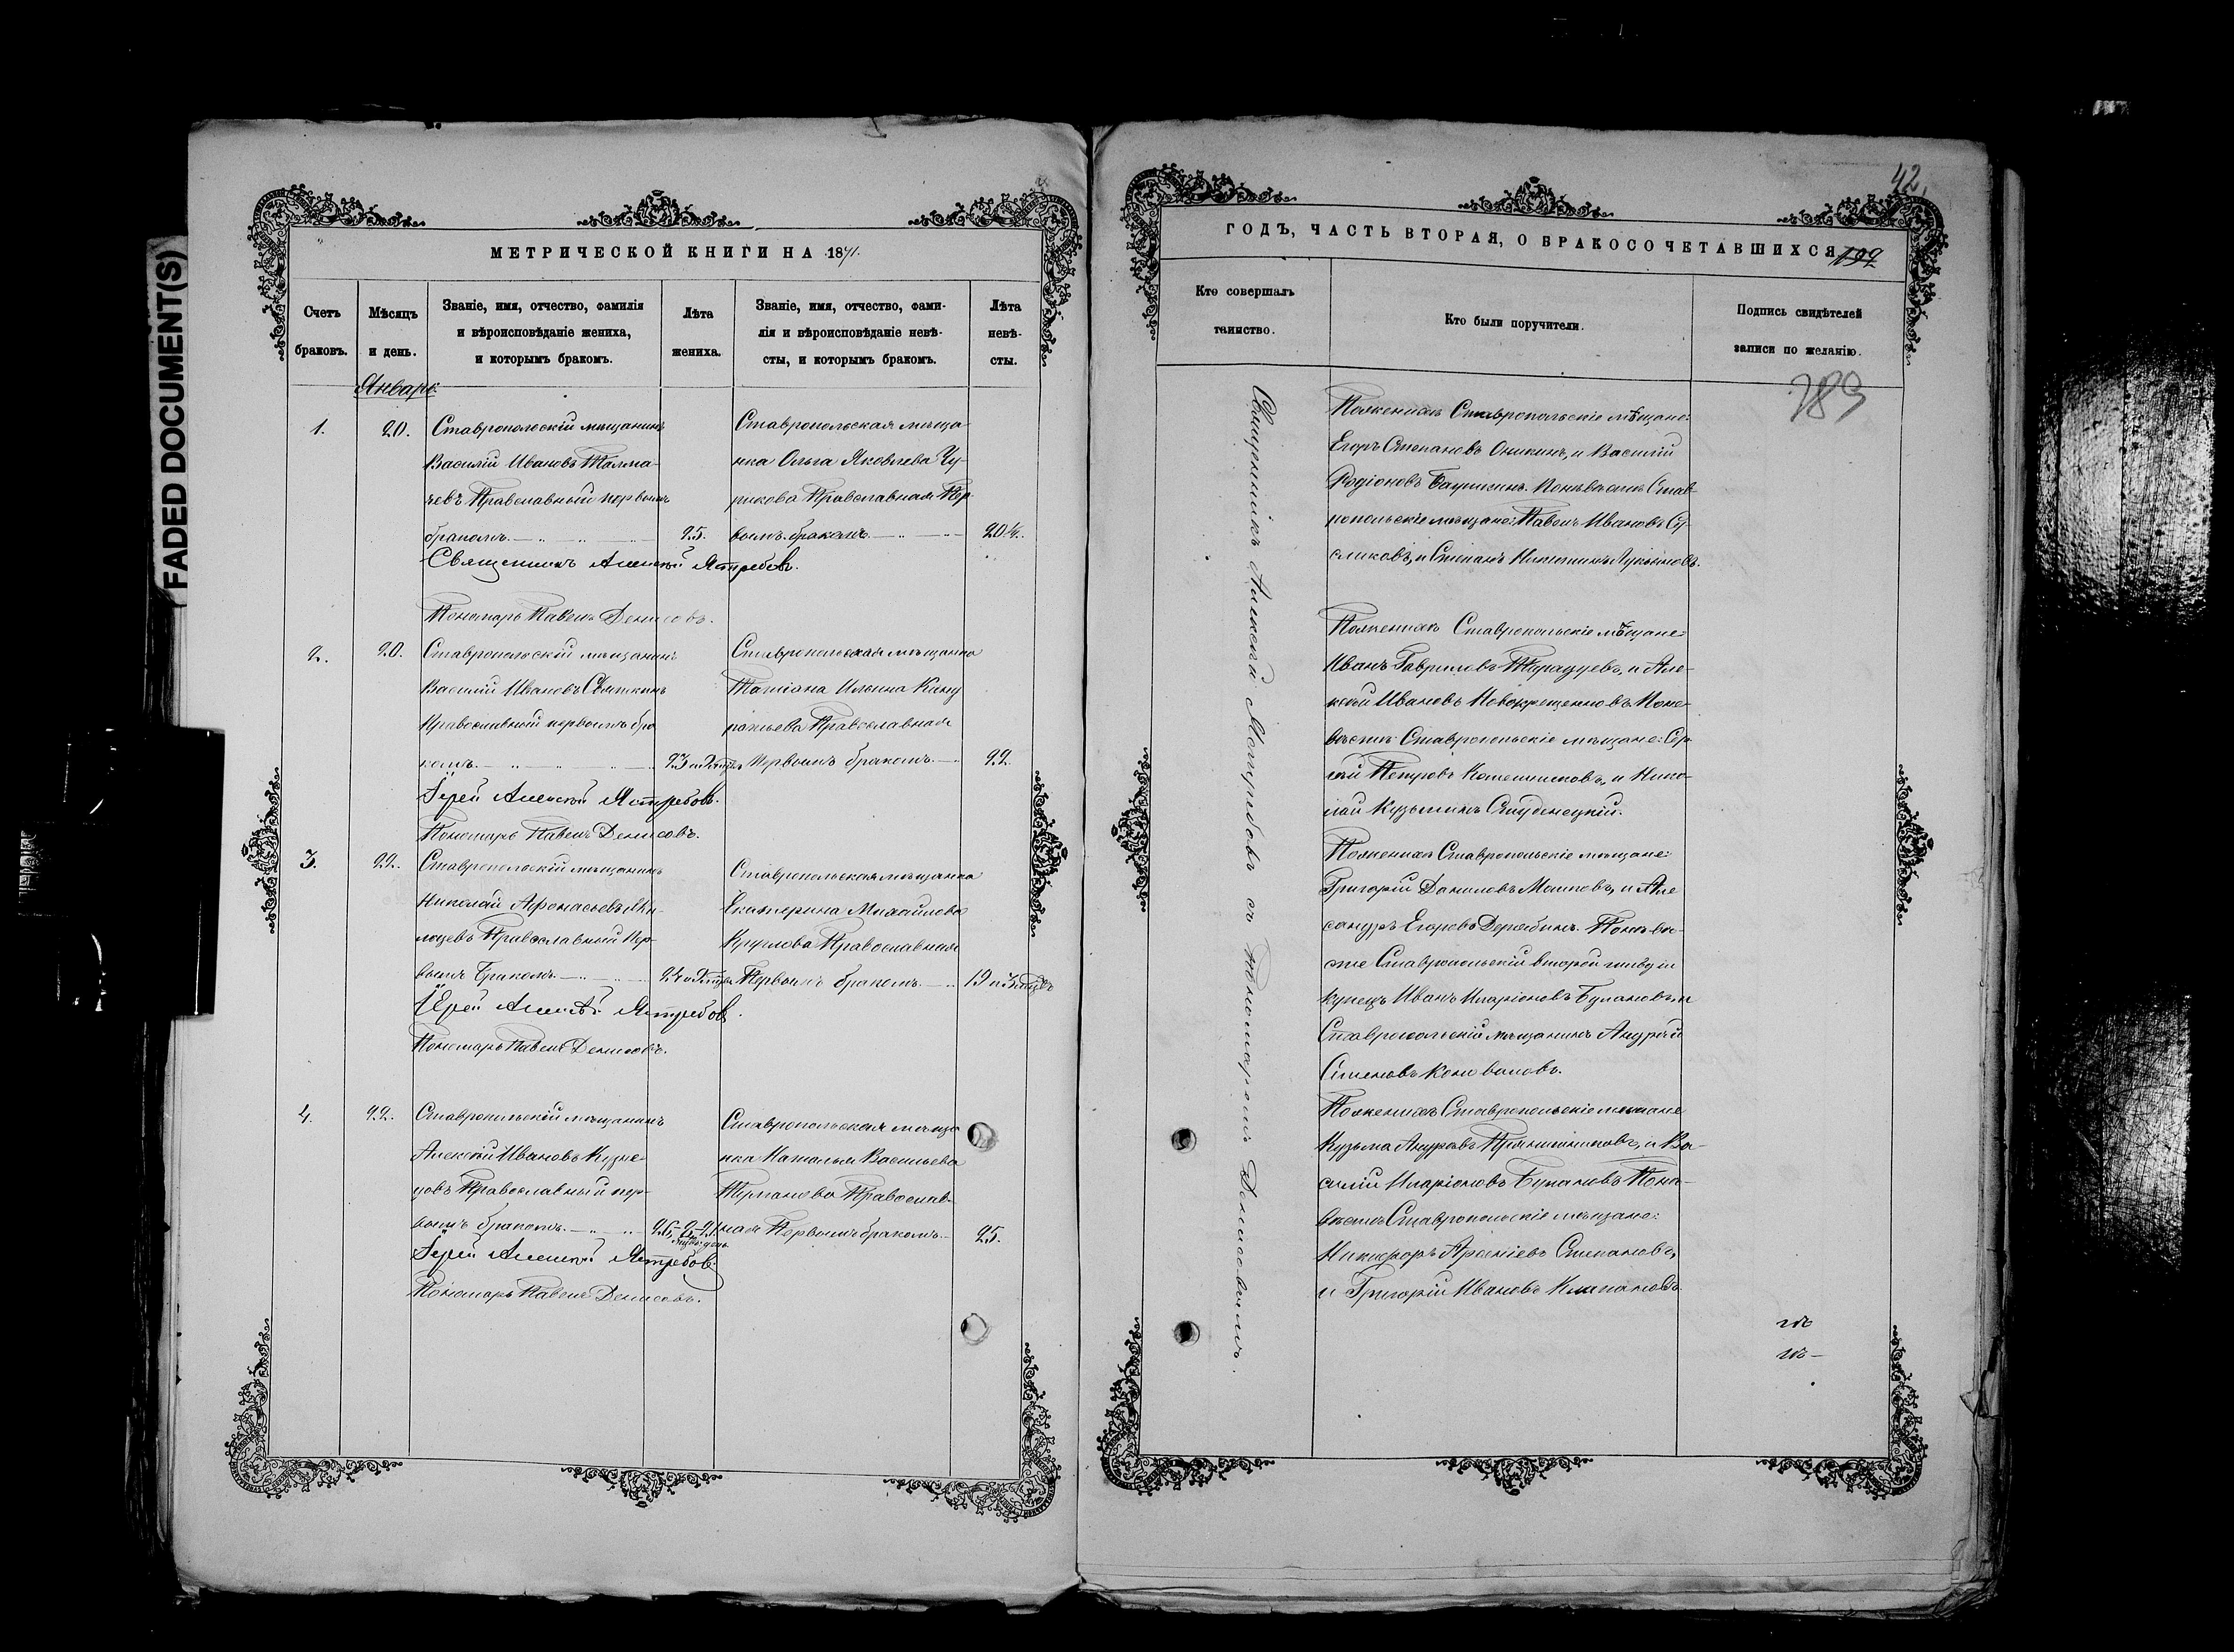 FADED DOCUMENT(S)
МЕТРИЧЕСКОЙ КНИГИ НА 1871.
Счетъ браковъ.
Мѣсяцъ и день.
Званіе, имя, отчество, фамилія
и вѣроисповѣданіе жениха,
и которымъ бракомъ.
Лѣта жениха.
Званіе, имя, отчество, фами-
лія и вѣроисповѣданіе невѣ-
сты, и которымъ бракомъ.
Лѣта невѣ-
сты.
Январь
1. 20.
Ставропольскій мѣщанинъ
Василій Ивановъ Толма-
чевъ Православный первымъ
бракомъ. 25.
Ставропольская мѣща-
нка Ольга Яковлева Чу-
рикова Православная Пер
вымъ бракомъ. 20½.
Священникъ Алексѣй Ястребовъ.
Пономарь Павелъ Денисовъ.
2. 20.
Ставропольскій мѣщанинъ
Василій Ивановъ Святкинъ
Православный первымъ бра
комъ.
Ставропольская мѣщанка
Татіана Ильина
Православная
Первымъ бракомъ. 22.
Іерей Алексѣй Ястребовъ.
Пономарь Павелъ Денисовъ.
3. 22.
Ставропольскій мѣщанинъ
Николай Афонасьевъ
Православный Пер-
вымъ Бракомъ.
Ставропольская мѣщанка
Екатерина Михайлова
Круглова Православная
Первымъ бракомъ.
Іерей Алексѣй Ястребовъ.
Пономарь Павелъ Денисовъ.
4. 22.
Ставропольскій мѣщанинъ
Алексѣй Ивановъ Кузне-
цовъ Православный пер-
вымъ бракомъ.
Ставропольская мѣща
нка Наталья Васильева
Турманова Православ-
ная Первымъ бракомъ. 25.
Іерей Алексѣй Ястребовъ.
Пономарь Павелъ Денисовъ.
42.
ГОДЪ, ЧАСТЬ ВТОРАЯ, О БРАКОСОЧЕТАВШИХСЯ
199
Кто совершалъ
таинство.
Кто были поручители.
Подпись свидѣтелей
записи по желанію.
789
Священникъ Алексѣй Ястребовъ съ Пономаремъ Денисовымъ.
Поженихѣ Ставропольскіе мѣщане:
Егоръ Степановъ Оникинъ, и Василій
Родіоновъ Баушкинъ. Поневѣстѣ Став-
ропольскіе мѣщане: Павелъ Ивановъ Су-
сликовъ, и Степанъ Никитинъ Лукьяновъ.
Поженихѣ Ставропольскіе мѣщане:
Иванъ Гавриловъ и Але-
ксѣй Ивановъ Новокрещенновъ. Поне-
вѣстѣ: Ставропольскіе мѣщане: Сер
гѣй Петровъ и Нико-
лай Кузьминъ Студенецкій.
Поженихѣ Ставропольскіе мѣщане:
Григорій Даниловъ и Але
сандръ Егоровъ Дерябинъ. Поневѣ-
стѣ Ставропольскій второй гильдіи
купецъ Иванъ Иларіоновъ Булановъ, и
Ставропольскій мѣщанинъ Андрей
Семеновъ Коноваловъ.
Поженихѣ Ставропольскіе мѣщане
Кузьма Андреевъ Пряничниковъ, и Ва-
силій Иларіоновъ Булановъ Поне-
вѣстѣ Ставропольскіе мѣщане:
Никифоръ Арсеніевъ Степановъ,
и Григорій Ивановъ